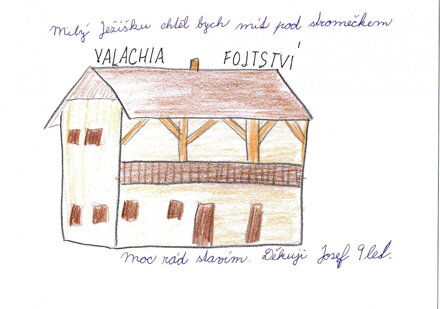 Milý Ježíšku chtěl bych mít pod stromečkem
VALACHIA FOJTSTVÍ
Moc rád stavím. Děkuji Josef 9 let.